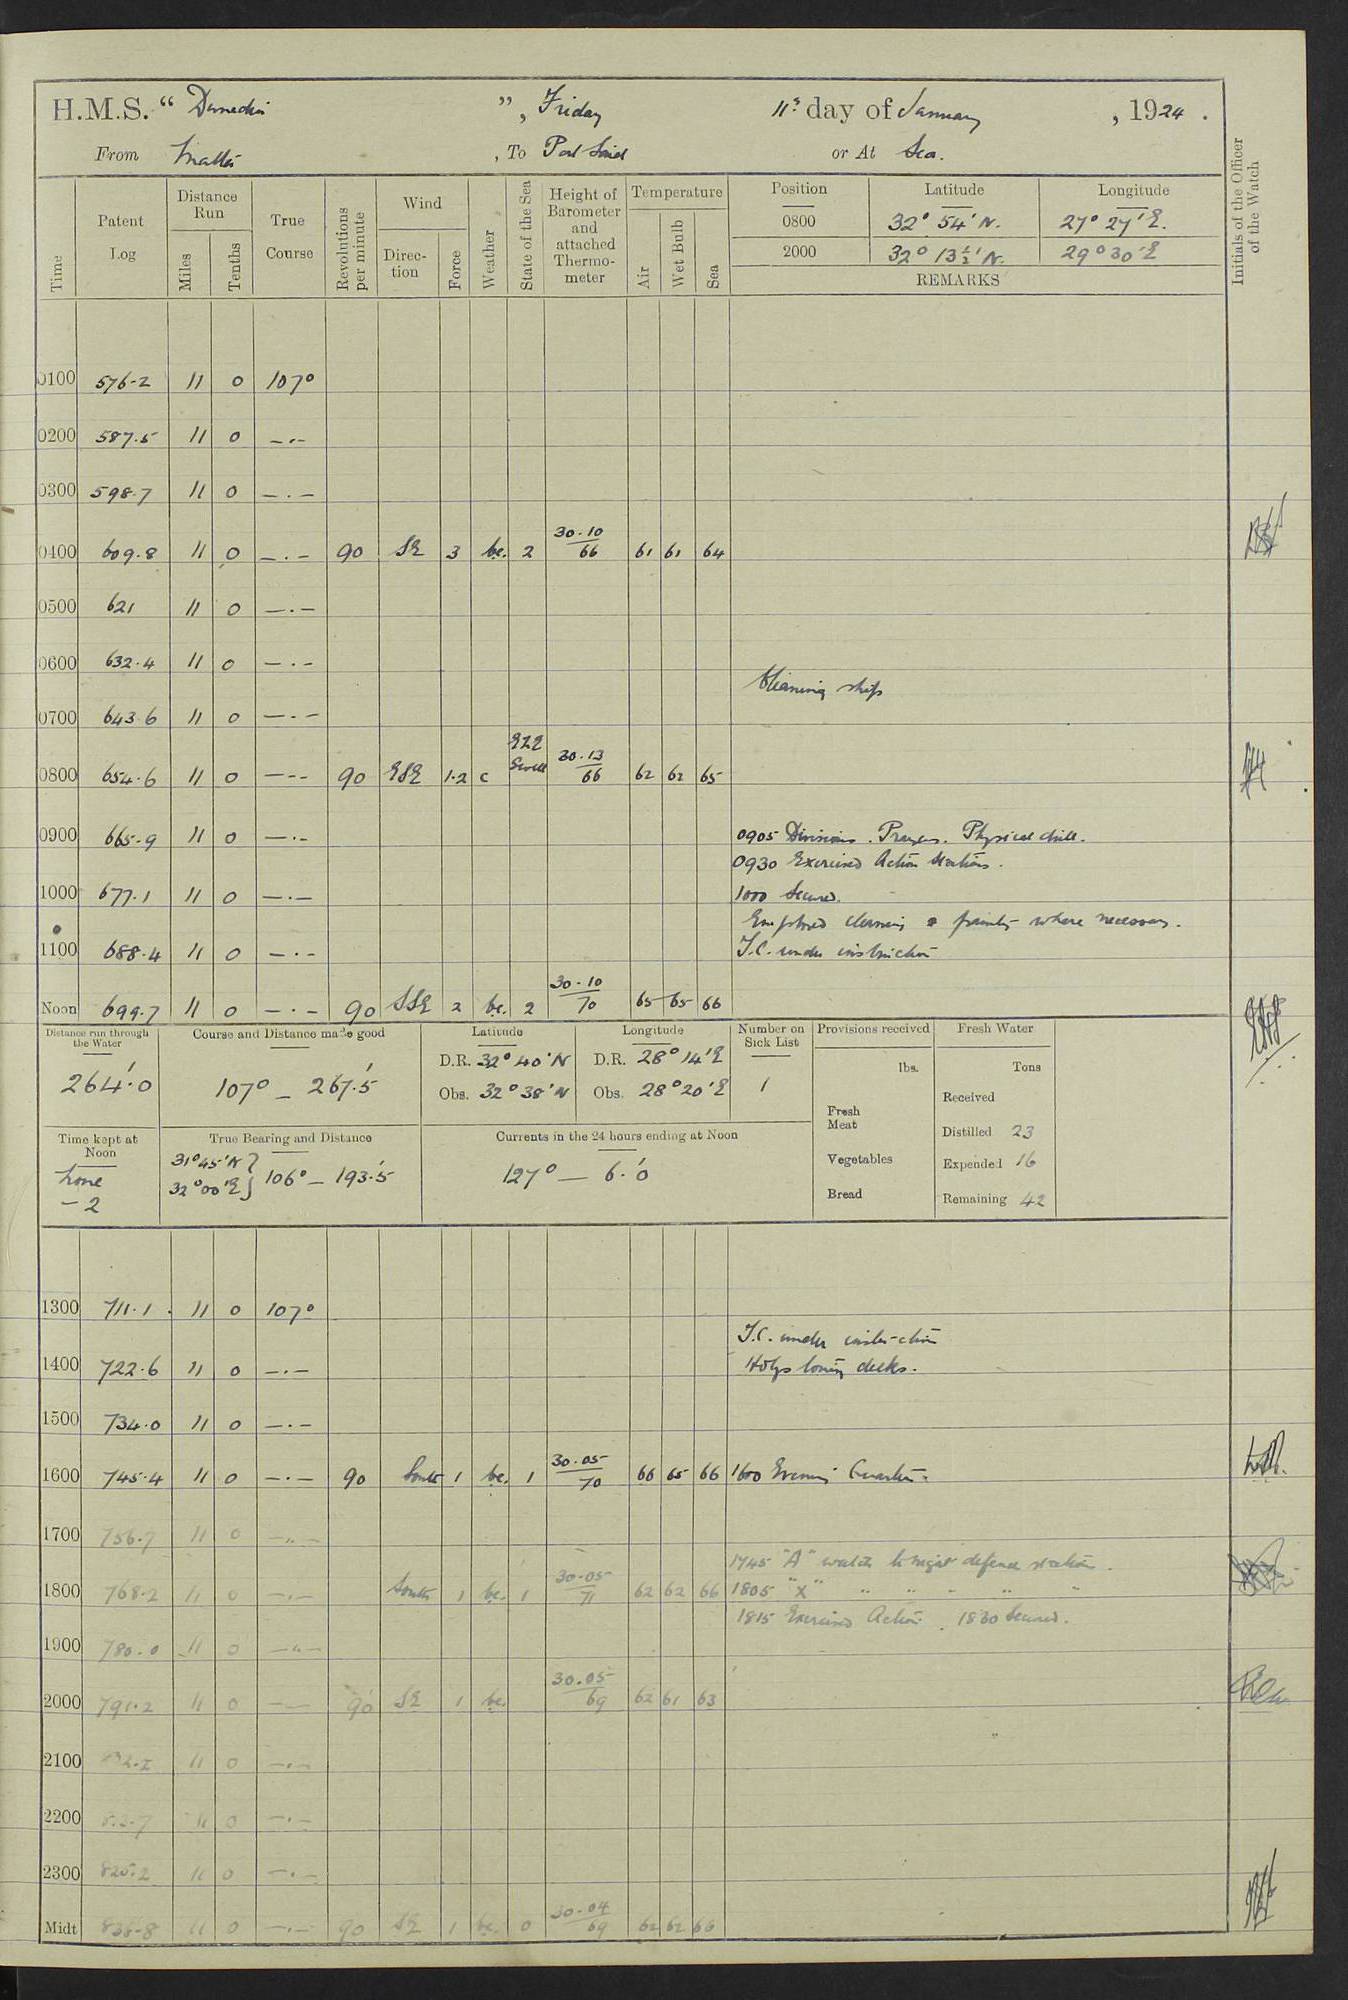 H.M.S. “ Dunedin ”, Friday 11th day of January, 1924.
From Malta, To Port Said or At Sea.
Time
Patent Log
Distance Run
Miles
Tenths
True Course
Revolutions per minute
Wind
Direc-tion
Force
Weather
State of the Sea
Height of Barometer and attached Thermo-meter
Temperature
Air
Wet Bulb
Sea
Position Latitude Longitude
0800 32° 54' N. 27° 27' E.
2000 32° 13½' N. 29° 30' E
REMARKS
Initials of the Officer of the Watch
0100 576.2 11 0 107°
0200 587.5 11 0 —.—
0300 598.7 11 0 —.—
0400 609.8 11 0 —.— 90 SE 3 bc. 2 30.10/66 61 61 64
0500 621 11 0 —.—
0600 632.4 11 0 —.—
Cleaning ship
0700 643.6 11 0 —.—
0800 654.6 11 0 —.— 90 ESE 1.2 c ESE Swell 30.13/66 62 62 65
0900 665.9 11 0 —.— 0905 Divisions. Prayers. Physical drill.
0930 Exercised Action Stations.
1000 677.1 11 0 —.— 1000 Secured.
Employed cleaning & painting where necessary.
1100 688.4 11 0 —.— T.C. under instruction
Noon 699.7 11 0 —.— 90 SSE 2 bc. 2 30.10/70 65 65 66
Distance run through the Water
264'.0
Course and Distance made good
107° — 267'.5
Latitude
D.R. 32° 40' N
Obs. 32° 38' N
Longitude
D.R. 28° 14' E
Obs. 28° 20' E
Number on Sick List
1
Provisions received
lbs.
Fresh Meat
Vegetables
Bread
Fresh Water
Tons
Received
Distilled 23
Expended 16
Remaining 42
Time kept at Noon
Zone
– 2
True Bearing and Distance
31° 45' N
32° 00' E } 106° — 193'.5
Currents in the 24 hours ending at Noon
127° — 6'.0
1300 711.1 11 0 107°
T.C. under instruction
1400 722.6 11 0 —.— decks.
1500 734.0 11 0 —.—
1600 745.4 11 0 —.— 90 South 1 bc. 1 30.05/70 66 65 66 1600 Evening Quarters.
1700 756.7 11 0 —.—
1745 "A" watch to night defence stations.
1800 768.2 11 0 —.— South 1 bc. 1 30.05/71 62 62 66 1805 "X" " " " " "
1815 Exercised Action. 1830 Secured.
1900 780.0 11 0 —.—
2000 791.2 11 0 —.— 90 SE 1 bc. 30.05/69 62 61 63
2100 11 0 —.—
2200 11 0 —.—
2300 825.2 11 0 —.—
Midt 11 0 —.— 90 SE 1 bc. 0 30.04/69 62 62 66